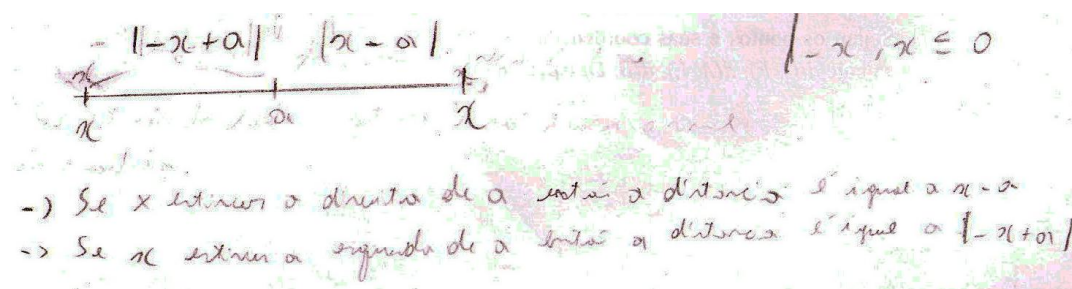 ||-x+a|| |x-a| |-x, x ≤ 0
x a x
-) Se x estiver a direita de a então a distância é igual a x-a
-> Se x estiver a esquerda de a então a distância é igual a |-x+a|